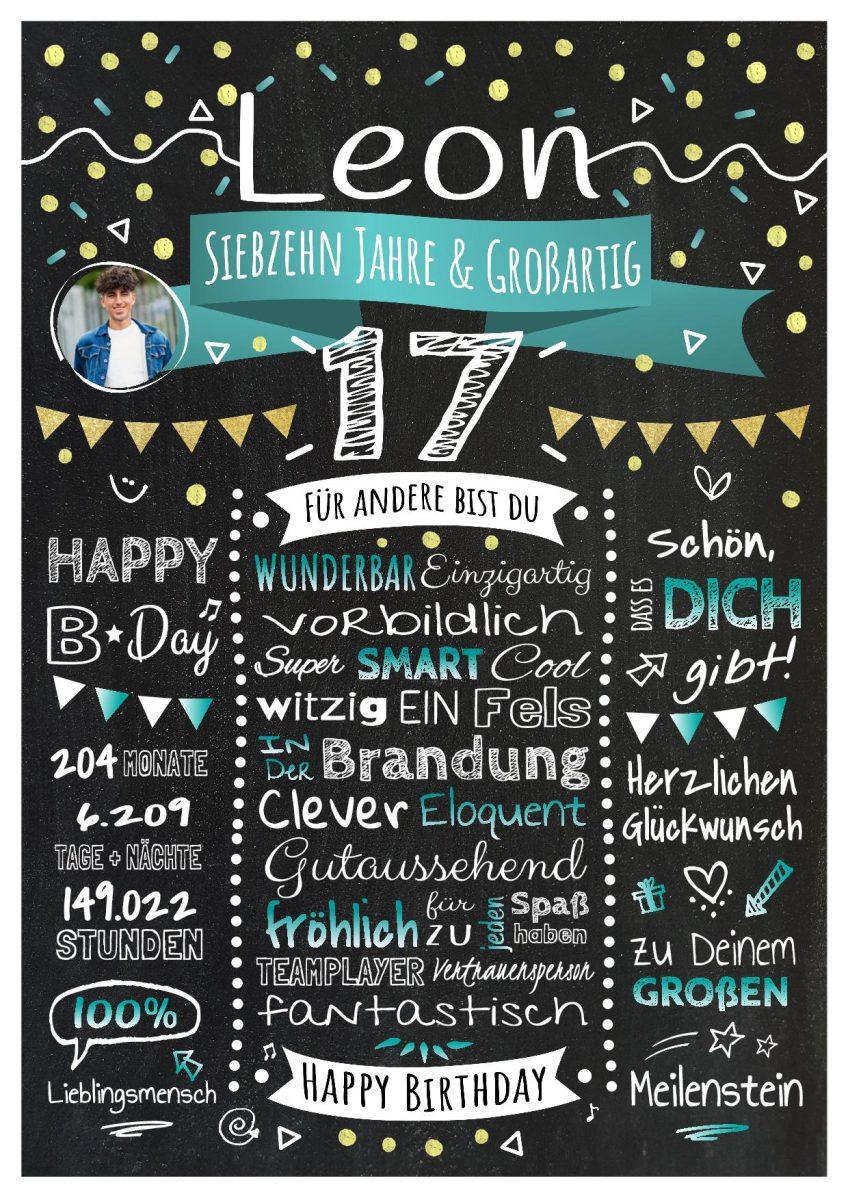 Leon
SIEBZEHN JAHRE & GROßARTIG
17
FÜR ANDERE BIST DU
HAPPY
B★Day
204 MONATE
6.209
TAGE + NÄCHTE
149.022
STUNDEN
100%
Lieblingsmensch
WUNDERBAR Einzigartig
vorbildlich
Super SMART Cool
witzig EIN Fels
IN Der Brandung
Clever Eloquent
Gutaussehend
fröhlich für jeden Spaß
zu haben
TEAMPLAYER Vertrauensperson
fantastisch
HAPPY BIRTHDAY
Schön,
DASS ES DICH
gibt!
Herzlichen
Glückwunsch
zu Deinem
GROßEN
Meilenstein